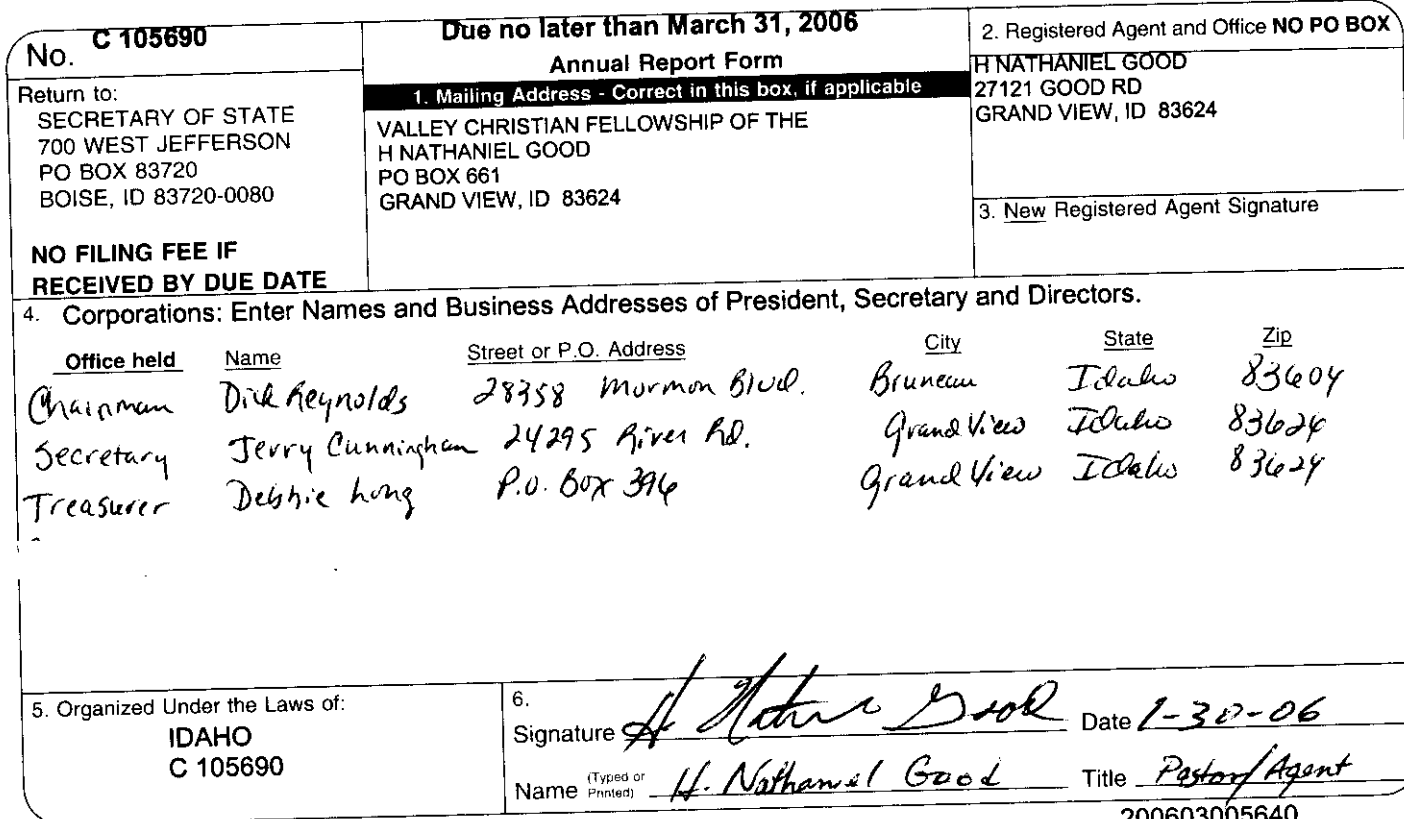 No. C 105690
Due no later than March 31, 2006
Annual Report Form
Return to:
SECRETARY OF STATE
700 WEST JEFFERSON
PO BOX 83720
BOISE, ID 83720-0080
NO FILING FEE IF
RECEIVED BY DUE DATE
1. Mailing Address - Correct in this box, if applicable
VALLEY CHRISTIAN FELLOWSHIP OF THE
H NATHANIEL GOOD
PO BOX 661
GRAND VIEW, ID 83624
2. Registered Agent and Office NO PO BOX
H NATHANIEL GOOD
27121 GOOD RD
GRAND VIEW, ID 83624
3. New Registered Agent Signature
4. Corporations: Enter Names and Business Addresses of President, Secretary and Directors.
Office held Name Street or P.O. Address City State Zip
Chairman Dick Reynolds 28358 Mormon Blvd. Bruneau Idaho 83604
Secretary Jerry Cunningham 24295 River Rd. Grand View Idaho 83624
Treasurer Debbie Long P.O. Box 396 Grand View Idaho 83624
5. Organized Under the Laws of:
IDAHO
C 105690
6.
Signature H. Nathaniel Good Date 1-30-06
Name (Typed or Printed) H. Nathaniel Good Title Pastor/Agent
200603005640